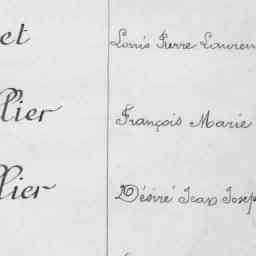 et Louis Pierre Lauren
llier François Marie
llier Désiré Jean Josep